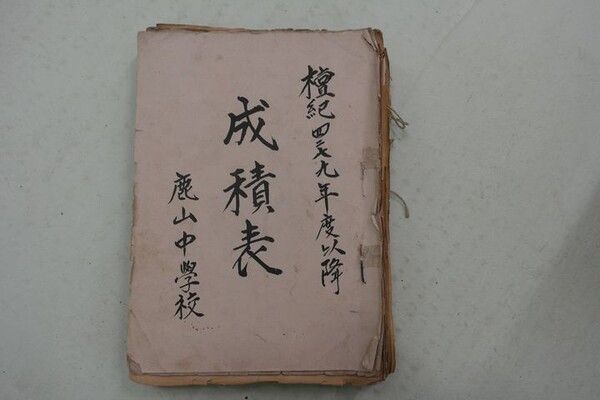 檀紀四二七九年度以降
成積表
鹿山中學校